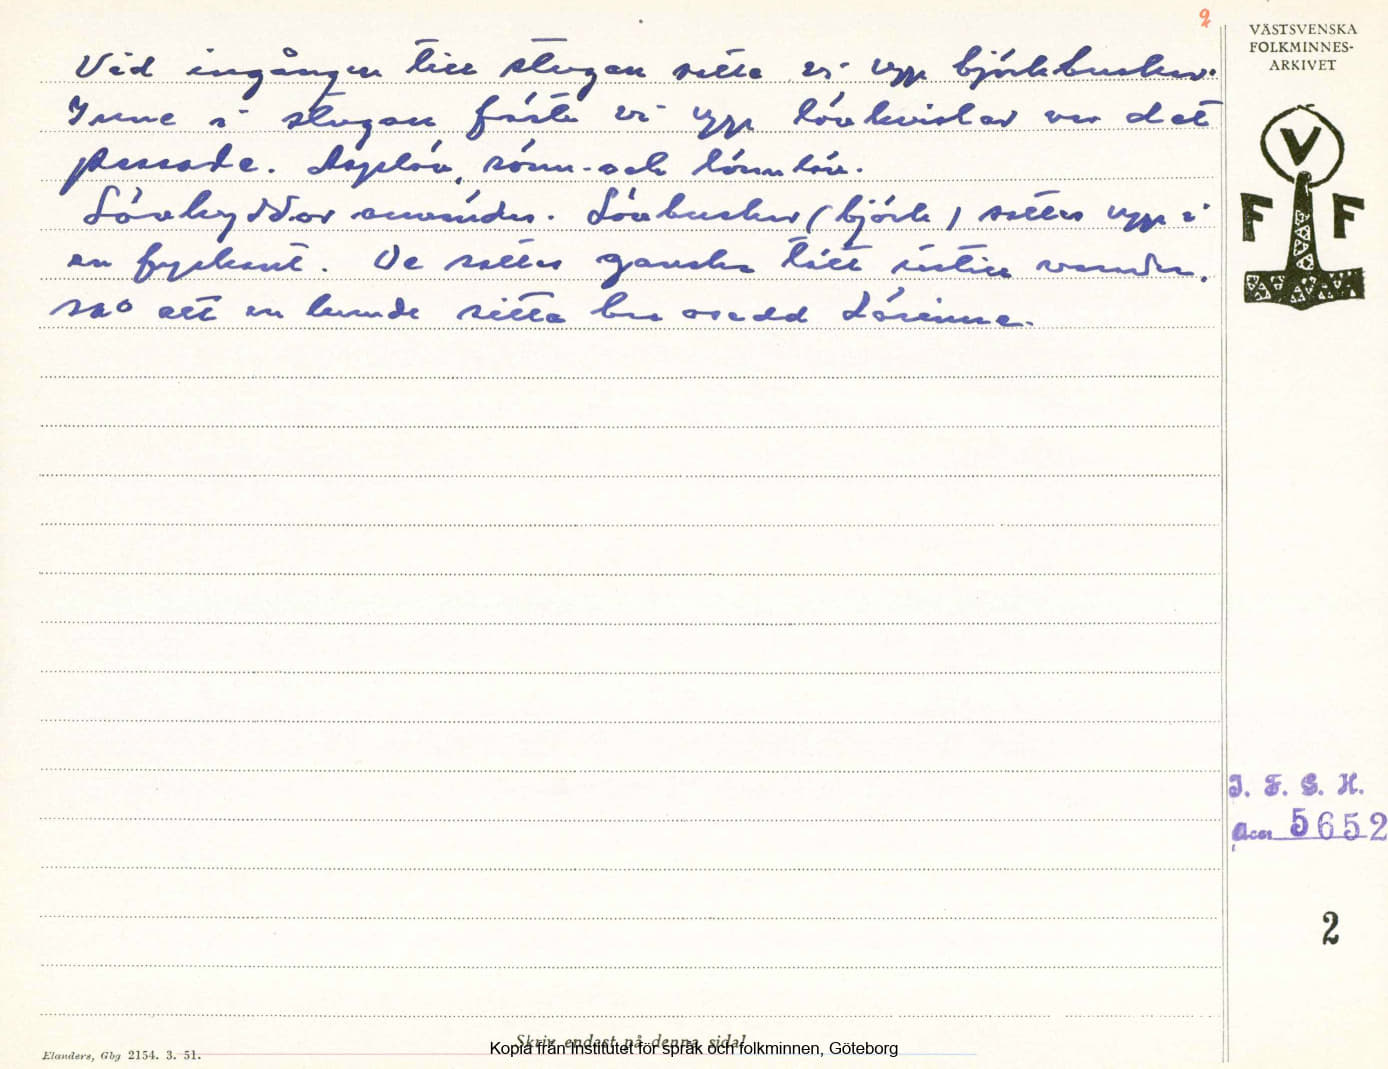 2
VÄSTSVENSKA
FOLKMINNES-
ARKIVET
V
F F
Vid ingången till stugan satte vi upp björkbuskar.
Inne i stugan fäste vi upp lövkvistar var det
passade. Asplöv, rönn- och lönnlöv.
Lövhyddor användes. Lövbuskar (björk) sattes upp i
en fyrkant. De sattes ganska tätt intill varandra,
så att en kunde sitta bra osedd därinne.
I. F. G. H.
Acc 5652
2
Skriv endast på denna sida!
Kopia från Institutet för språk och folkminnen, Göteborg
Elanders, Gbg 2154. 3. 51.